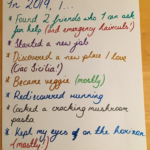 In 2019, I...
* Found 2 friends who I can ask
for help (and emergency haircuts!)
* Started a new job
* Discovered a new place I love
(Ciao Sicilia!)
* Became veggie (mostly)
* Rediscovered running
* Cooked a cracking mushroom
pasta
* Kept my eyes on the horizon
(mostly!)